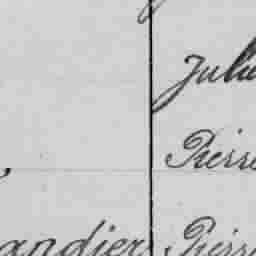 Julie
Pierre
andier Pierre